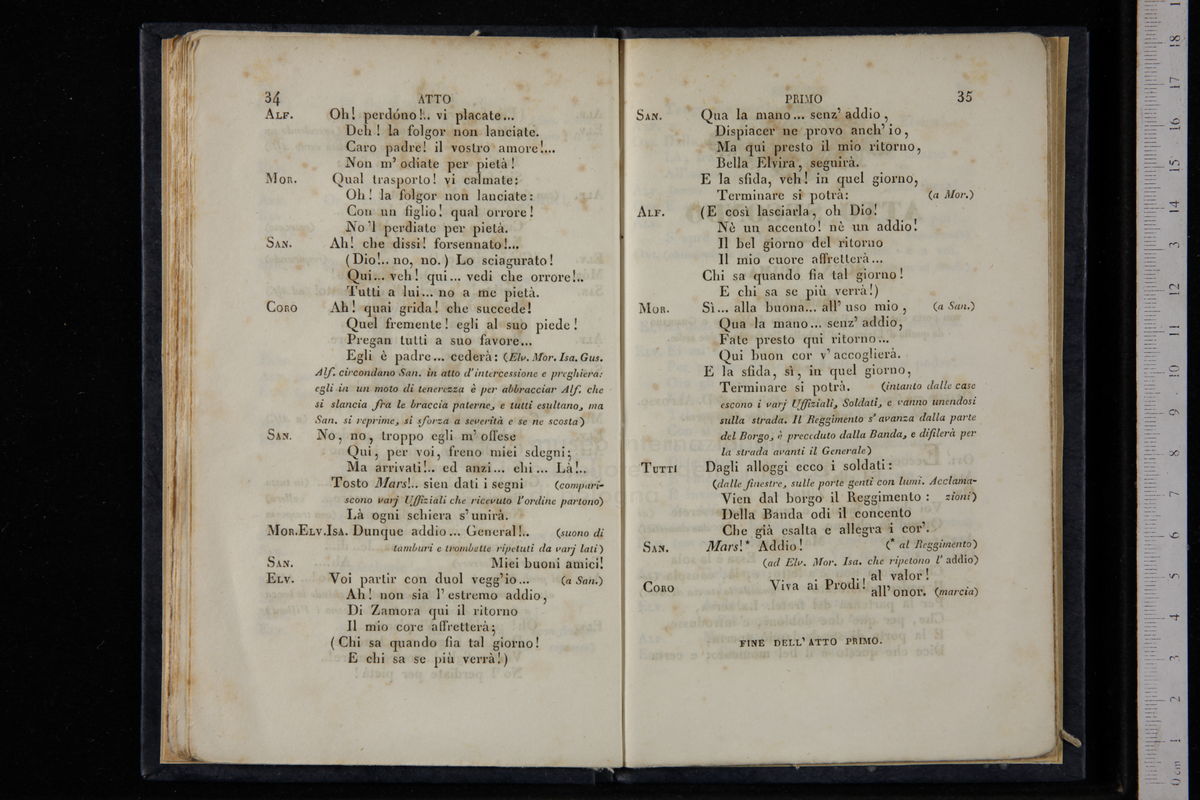 34 ATTO
ALF. Oh! perdóno!.. vi placate...
Deh! la folgor non lanciate.
Caro padre! il vostro amore!...
Non m' odiate per pietà!
MOR. Qual trasporto! vi calmate:
Oh! la folgor non lanciate:
Con un figlio! qual orrore!
No'l perdiate per pietà.
SAN. Ah! che dissi! forsennato!...
(Dio!.. no, no.) Lo sciagurato!
Qui... veh! qui... vedi che orrore!..
Tutti a lui... no a me pietà.
CORO Ah! quai grida! che succede!
Quel fremente! egli al suo piede!
Pregan tutti a suo favore...
Egli è padre... cederà: (Elv. Mor. Isa. Gus.
Alf. circondano San. in atto d'intercessione e preghiera:
egli in un moto di tenerezza è per abbracciar Alf. che
si slancia fra le braccia paterne, e tutti esultano, ma
San. si reprime, si sforza a severità e se ne scosta)
SAN. No, no, troppo egli m' offese
Qui, per voi, freno miei sdegni;
Ma arrivati!.. ed anzi... ehi... Là!..
Tosto Mars!.. sien dati i segni (compari-
scono varj Uffiziali che ricevuto l'ordine partono)
Là ogni schiera s'unirà.
MOR.ELV.ISA. Dunque addio... General!.. (suono di
tamburi e trombette ripetuti da varj lati)
SAN. Miei buoni amici!
ELV. Voi partir con duol vegg'io... (a San.)
Ah! non sia l'estremo addio,
Di Zamora qui il ritorno
Il mio core affretterà;
(Chi sa quando fia tal giorno!
E chi sa se più verrà!)
PRIMO 35
SAN. Qua la mano... senz' addio,
Dispiacer ne provo anch' io,
Ma qui presto il mio ritorno,
Bella Elvira, seguirà.
E la sfida, veh! in quel giorno,
Terminare si potrà: (a Mor.)
ALF. (E così lasciarla, oh Dio!
Nè un accento! nè un addio!
Il bel giorno del ritorno
Il mio cuore affretterà...
Chi sa quando fia tal giorno!
E chi sa se più verrà!)
MOR. Sì... alla buona... all' uso mio, (a San.)
Qua la mano... senz' addio,
Fate presto qui ritorno...
Qui buon cor v' accoglierà.
E la sfida, sì, in quel giorno,
Terminare si potrà. (intanto dalle case
escono i varj Uffiziali, Soldati, e vanno unendosi
sulla strada. Il Reggimento s' avanza dalla parte
del Borgo, è preceduto dalla Banda, e difilerà per
la strada avanti il Generale)
TUTTI Dagli alloggi ecco i soldati:
(dalle finestre, sulle porte genti con lumi. Acclama-
Vien dal borgo il Reggimento: zioni)
Della Banda odi il concento
Che già esalta e allegra i cor'.
SAN. Mars!* Addio! (* al Reggimento)
(ad Elv. Mor. Isa. che ripetono l' addio)
CORO Viva ai Prodi! al valor!
all' onor. (marcia)
FINE DELL' ATTO PRIMO.